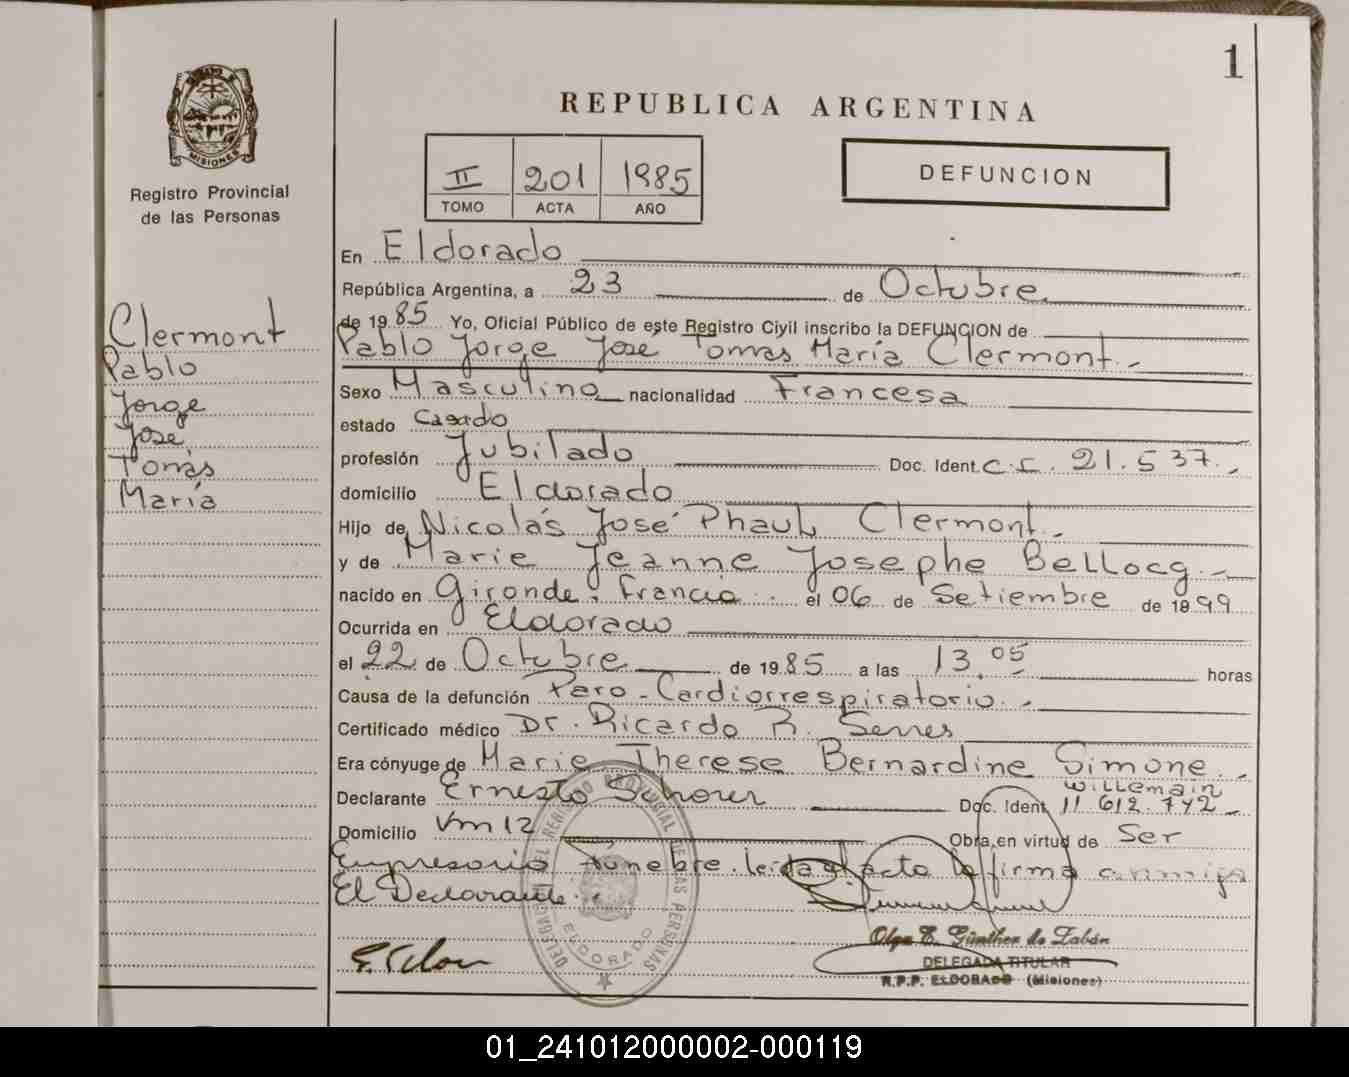 1
MISIONES
Registro Provincial
de las Personas
REPUBLICA ARGENTINA
II 201 1985
TOMO ACTA AÑO
DEFUNCION
Clermont
Pablo
Jorge
José
Tomás
María
En Eldorado
República Argentina, a 23 de Octubre
de 1985 Yo, Oficial Público de este Registro Civil inscribo la DEFUNCION de
Pablo Jorge José Tomas María Clermont.-
Sexo Masculino nacionalidad Francesa
estado Casado
profesión Jubilado Doc. Ident. C.I. 21.537.-
domicilio Eldorado
Hijo de Nicolás José Phaul Clermont.-
y de Marie Jeanne Josephe Bellocq.-
nacido en Gironde. Francia. el 06 de Setiembre de 1899
Ocurrida en Eldorado
el 22 de Octubre de 1985 a las 13.05 horas
Causa de la defunción Paro-Cardiorrespiratorio.-
Certificado médico Dr. Ricardo R. Serres
Era cónyuge de Marie Therese Bernardine Simone.-
Willemain
Declarante Ernesto Schorer Doc. Ident. 11.612.742-
Domicilio Km 12 Obra en virtud de Ser
Empresario funebre. leida el acta la firma conmigo
El Declarante.-
DELEGACION REGISTRO PROVINCIAL DE LAS PERSONAS
ELDORADO
Olga E. Günther de Zabán
DELEGADA TITULAR
R.P.P. ELDORADO (Misiones)
01_241012000002-000119